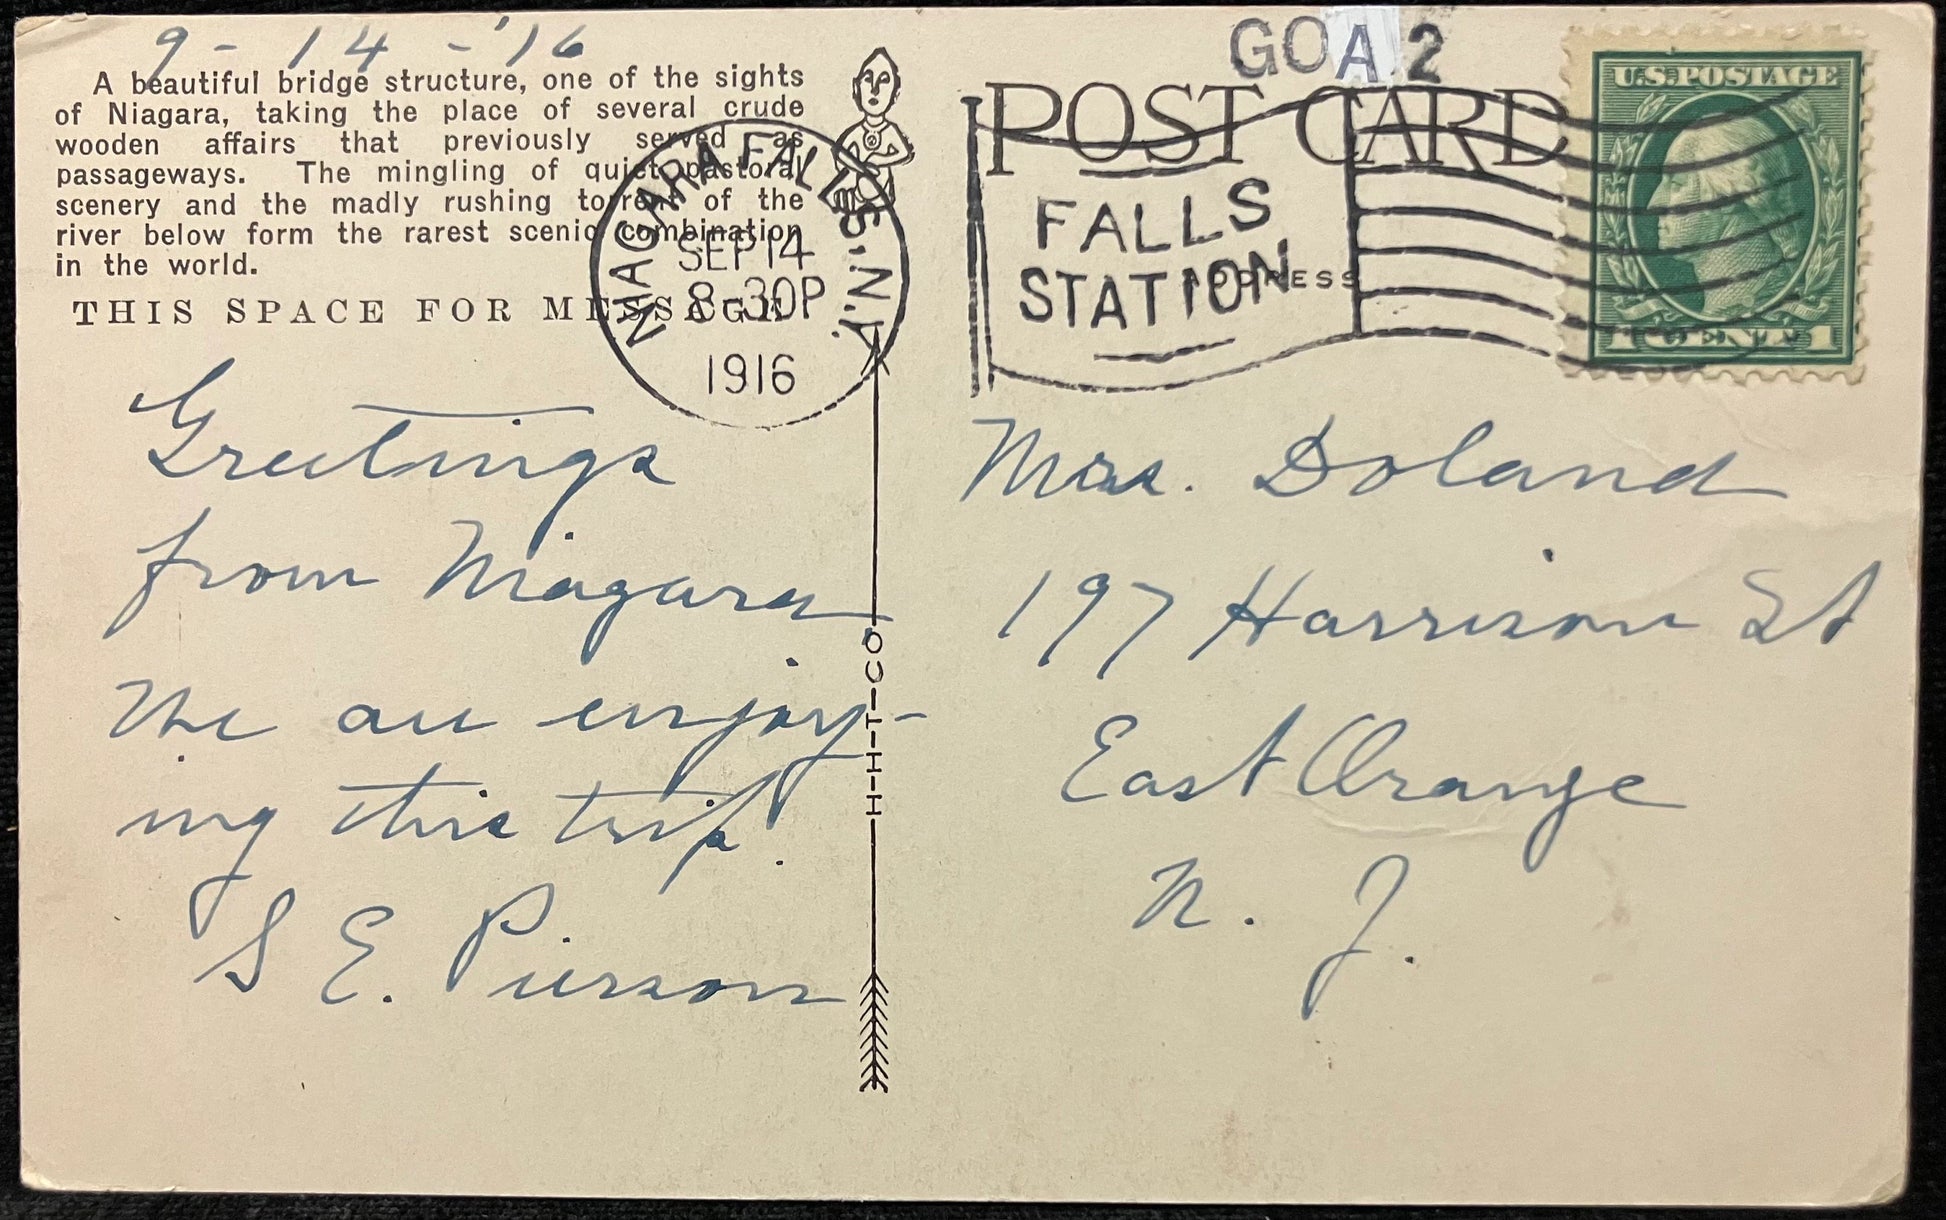 9 - 14 - '16
A beautiful bridge structure, one of the sights
of Niagara, taking the place of several crude
wooden affairs that previously served as
passageways. The mingling of quiet pastoral
scenery and the madly rushing torrent of the
river below form the rarest scenic combination
in the world.
THIS SPACE FOR MESSAGE
NIAGARA FALLS, N.Y.
SEP 14
8-30P
1916
Greetings
from Niagara
We are enjoy-
ing this trip.
S. E. Pierson
H-H-T-CO
GOA 2
POST CARD
FALLS
STATION
ADDRESS
U.S. POSTAGE
1 CENT 1
Mrs. Doland
197 Harrison St
East Orange
N. J.